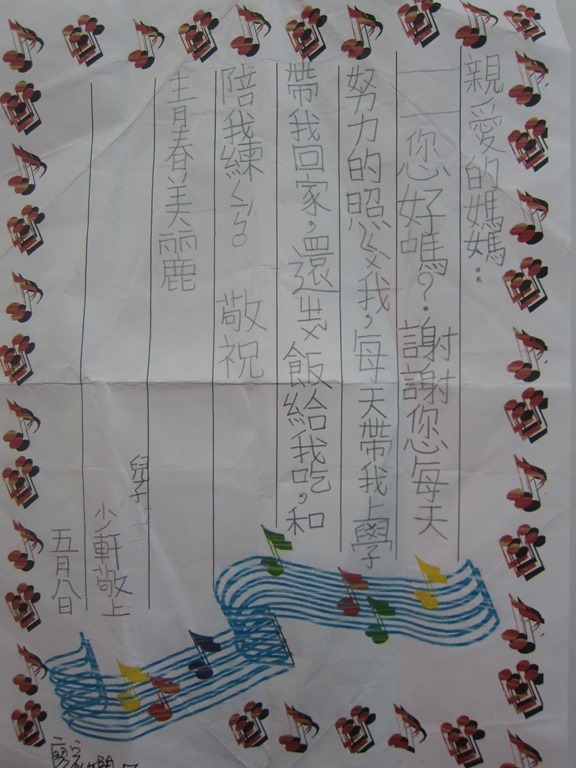 親愛的媽媽：
您好嗎？謝謝您每天
努力的照ㄍㄨ我，每天帶我上學
帶我回家，還ㄓㄨ飯給我吃，和
陪我練。 敬祝
青春美麗
兒子
少軒敬上
五月八日